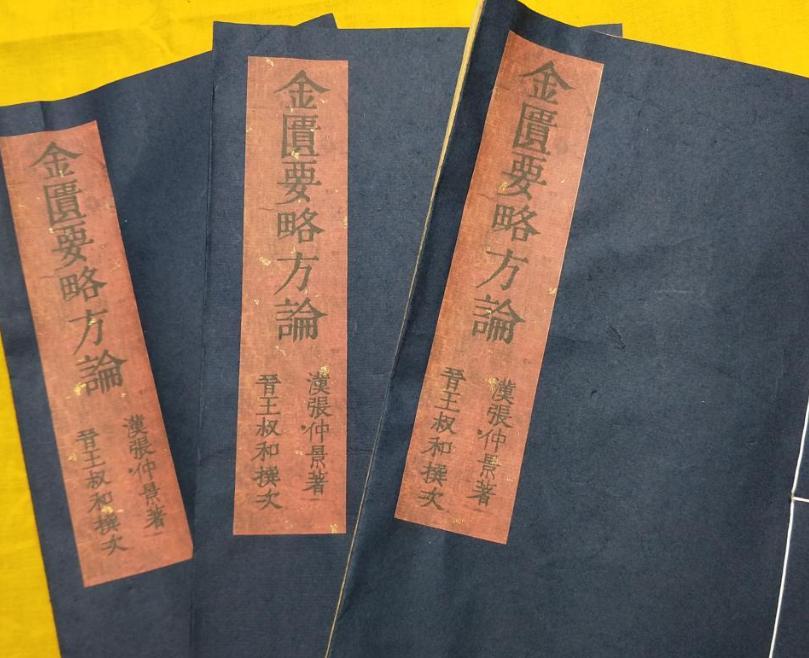 金匱要略方論
漢張仲景著
晉王叔和撰次
金匱要略方論
漢張仲景著
晉王叔和撰次
金匱要略方論
漢張仲景著
晉王叔和撰次